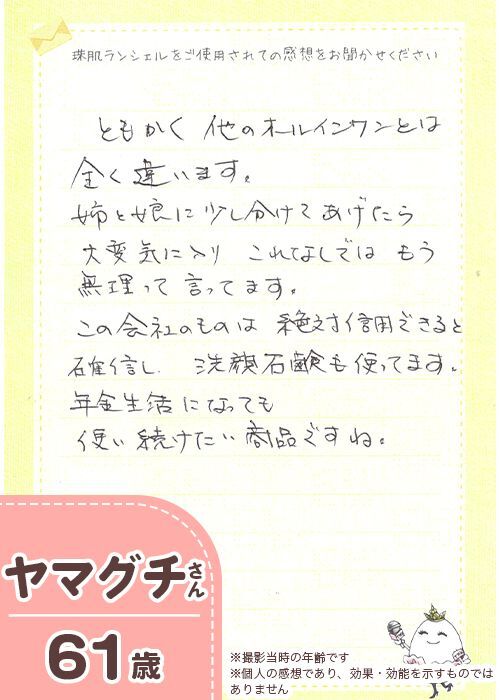 珠肌ランシェルをご使用されての感想をお聞かせください
ともかく 他のオールインワンとは
全く違います。
姉と娘に少し分けてあげたら
大変気に入り これなしでは もう
無理って言ってます。
この会社のものは 絶対信用できると
確信し、洗顔石鹸も使ってます。
年金生活になっても
使い続けたい商品ですね。
ヤマグチさん
61歳
※撮影当時の年齢です
※個人の感想であり、効果・効能を示すものでは
ありません